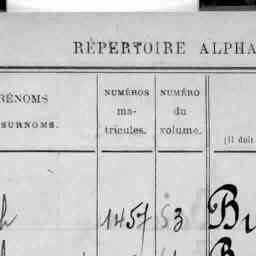 RÉPERTOIRE ALPHA
RÉNOMS
SURNOMS.
NUMÉROS
ma-
tricules.
NUMÉRO
du
volume.
(Il doit
1457 53 Bu